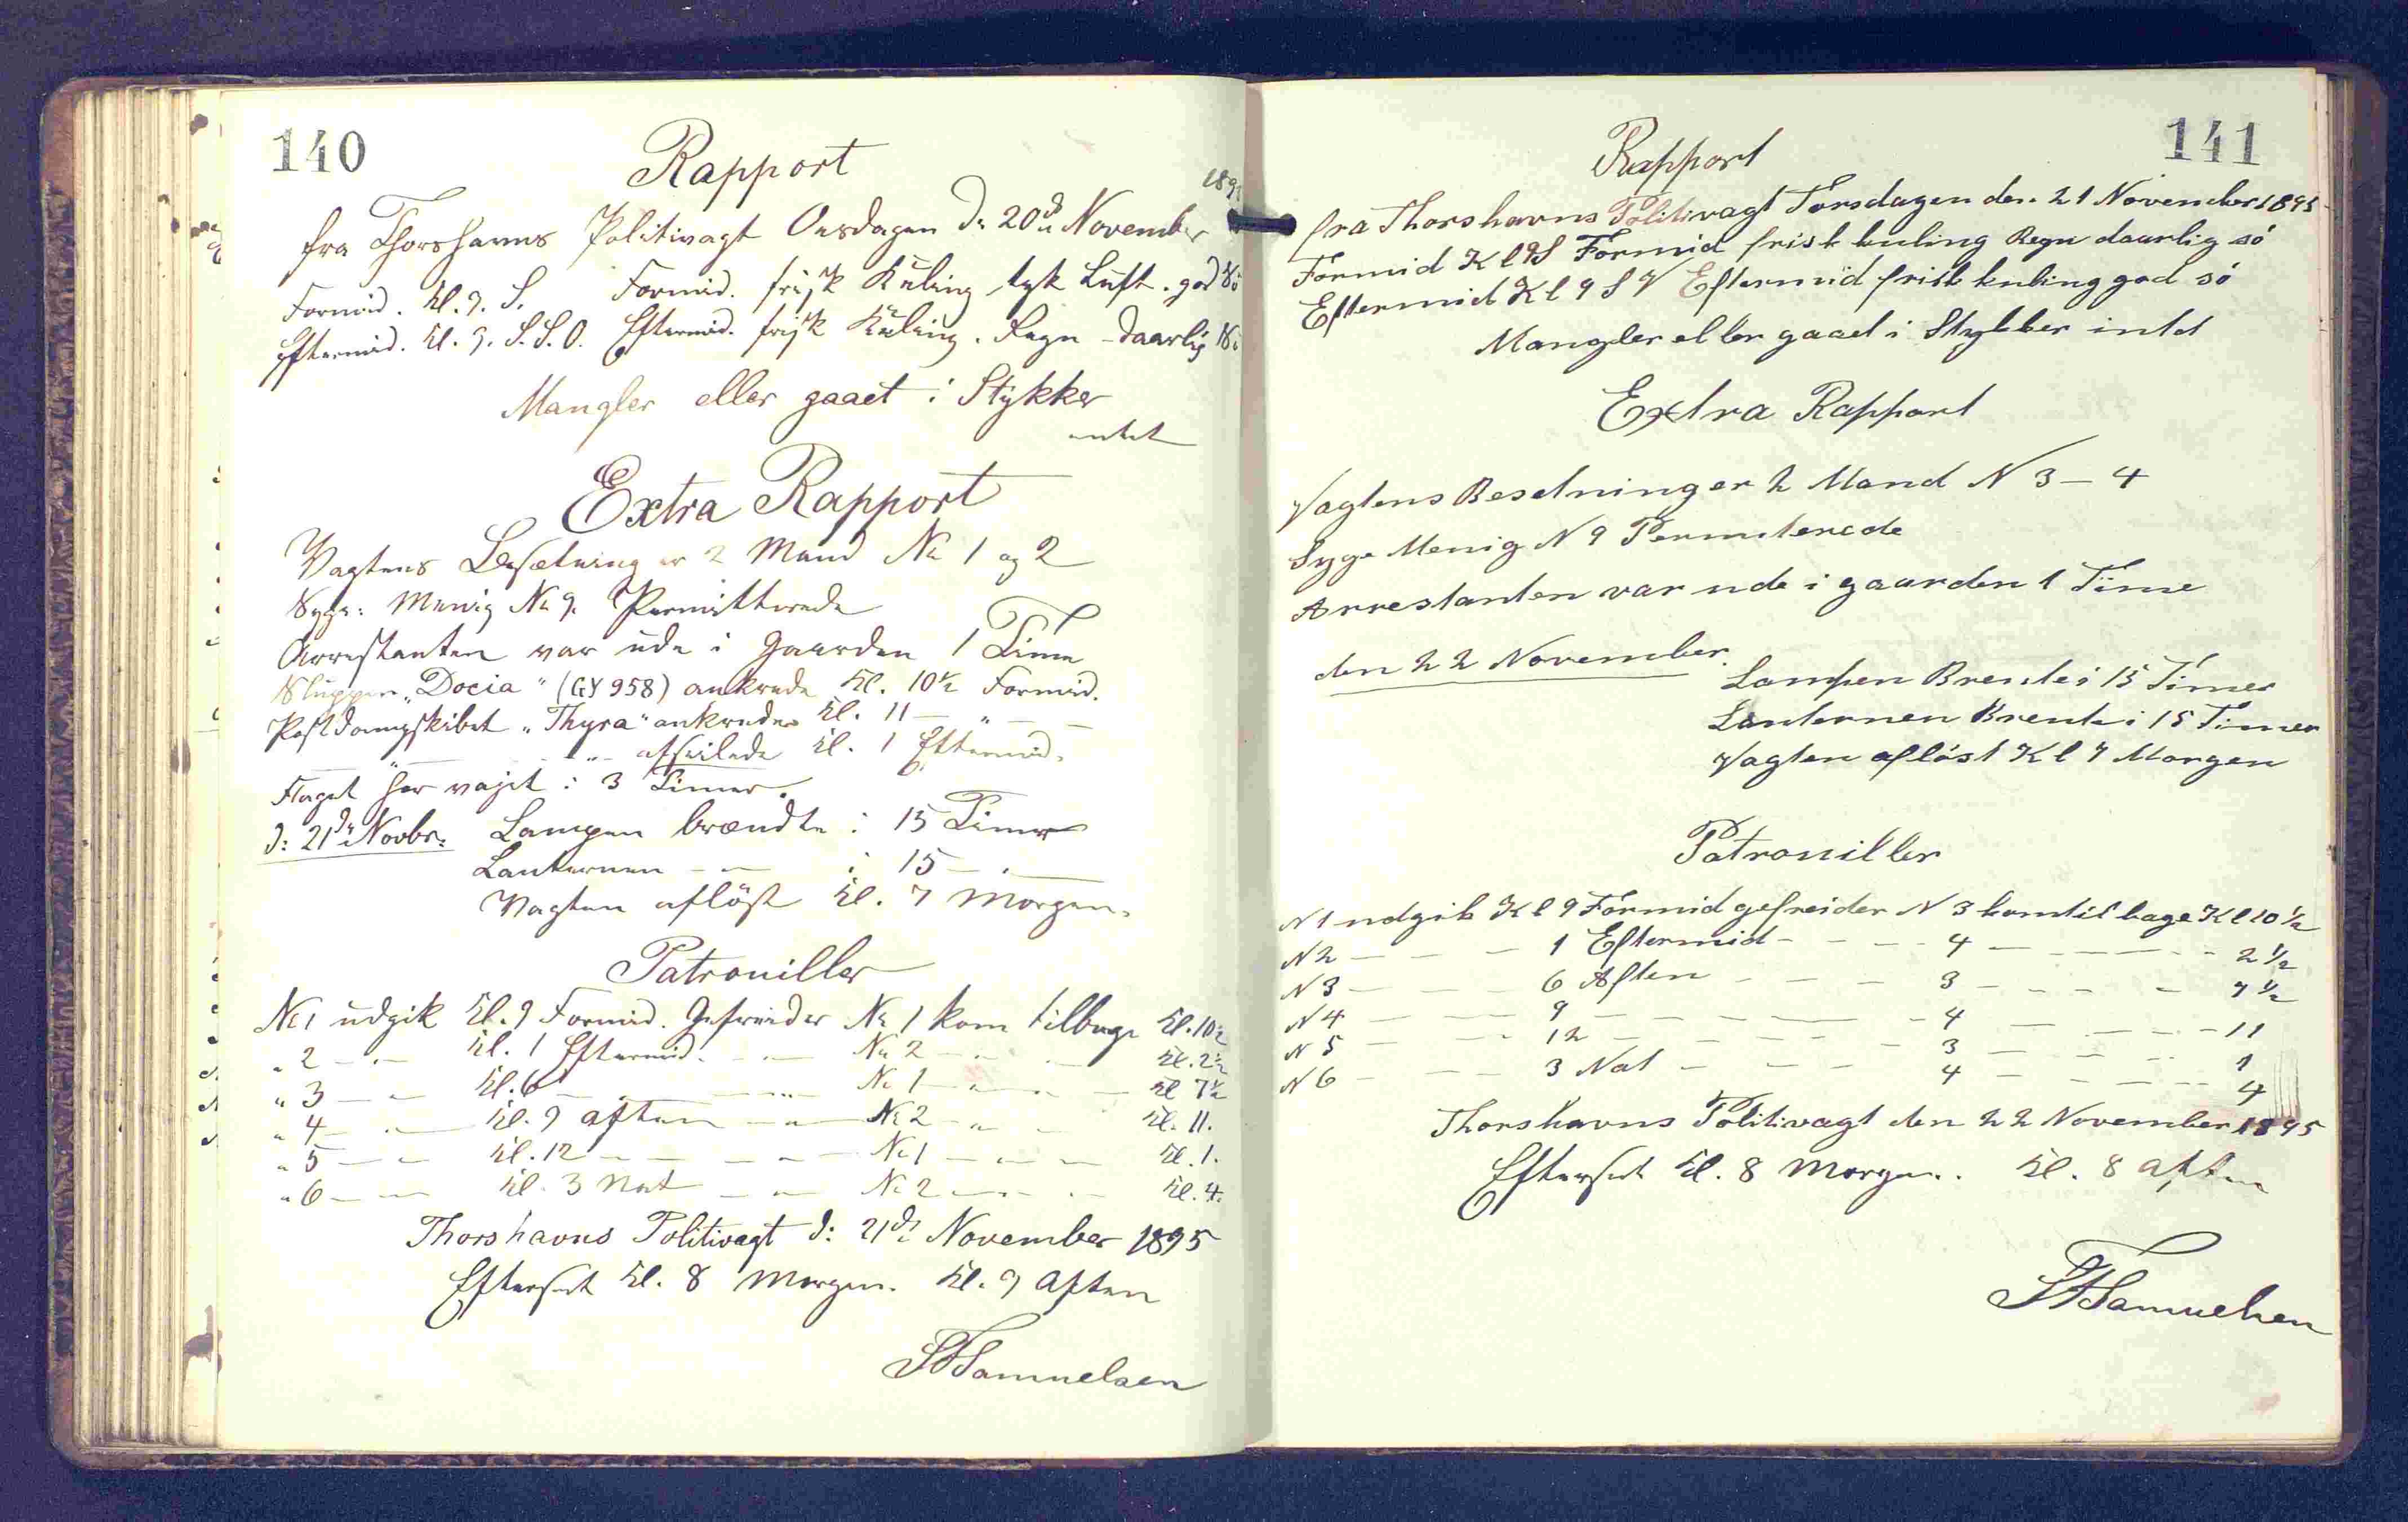 140
Rapport
1895
fra Thorshavns Politivagt Onsdagen d: 20de November
Formid. Kl. 9. S. Formid. frisk Kuling tyk Luft. god Sö
Eftermid. Kl. 9. S.S.O. Eftermid. frisk Kuling. Regn - daarlig Sö
Mangler eller gaaet i Stykker
intet
Extra Rapport
Vagtens Besætning er 2 Mand No 1 og 2
Syge: Menig No 9. Permitterede
Arrestanten var ude i Gaarden 1 Time
Sluppen "Docia" (GY 958) ankrede Kl. 10½ Formid.
Postdampskibet "Thyra" ankrede Kl. 11 — " —
— " — " — afseilede Kl. 1 Eftermid.
Flaget har vajet i 3 Timer.
d: 21de Novbr: Lampen brændte i 15 Timer
Lanternen — " — i 15 — " —
Vagten aflöst Kl. 7 Morgen.
Patrouiller
No 1 udgik Kl. 9 Formid. Gefreider No 1 kom tilbage Kl. 10½
" 2 — " — Kl. 1 Eftermid. — " — No 2 — " — Kl. 2½
" 3 — " — Kl. 6 — " — No 1 — " — Kl 7½
" 4 — " — Kl. 9 Aften — " — No 2 — " — Kl. 11.
" 5 — " — Kl. 12 — " — No 1 — " — Kl. 1.
" 6 — " — Kl. 3 Nat — " — No 2 — " — Kl. 4.
Thorshavns Politivagt d: 21de November 1895
Efterset Kl. 8 Morgen. Kl. 9 Aften
Samuelsen
141
Rapport
fra Thorshavns Politivagt Torsdagen den 21 November 1895
Formid Kl 9 S Formid frisk kuling Regn daarlig sö
Eftermid Kl 9 S V Eftermid frisk kuling god sö
Mangler eller gaaet i Stykker intet
Extra Rapport
Vagtens Besetning er 2 Mand N 3 — 4
Syge Menig N 9 Permiterede
Arrestanten var ude i gaarden 1 Time
den 22 November.
Lampen Brente i 15 Timer
Lanternen Brente i 15 Timer
Vagten aflöst Kl 7 Morgen
Patrouiller
N 1 udgik Kl 9 Formid gefreider N 3 kom tilbage Kl 10 ½
N 2 — — — 1 Eftermid — — — 4 — — — 2 ½
N 3 — — — 6 Aften — — — 3 — — — 7 ½
N 4 — — — 9 — — — 4 — — — 11
N 5 — — — 12 — — — 3 — — — 1
N 6 — — — 3 Nat — — — 4 — — — 4
Thorshavns Politivagt den 22 November 1895
Efterset Kl. 8 Morgen. Kl. 8 Aften
Samuelsen